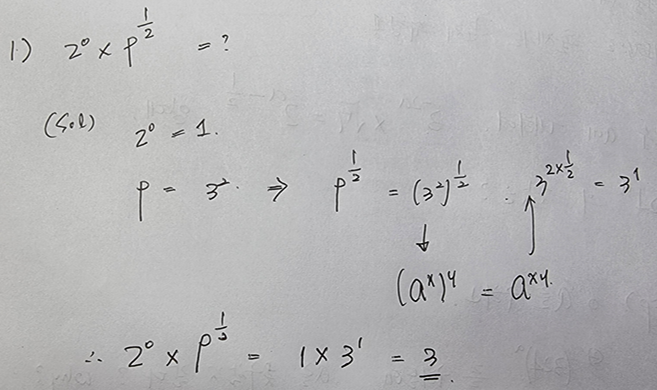 1.) 2⁰ × 9^{1/2} = ?
(Sol) 2⁰ = 1.
9 = 3². ⇒ 9^{1/2} = (3²)^{1/2} . 3^{2×1/2} = 3¹
↓ ↑
(aˣ)ʸ = a^{xy}.
∴ 2⁰ × 9^{1/2} = 1 × 3¹ = 3.